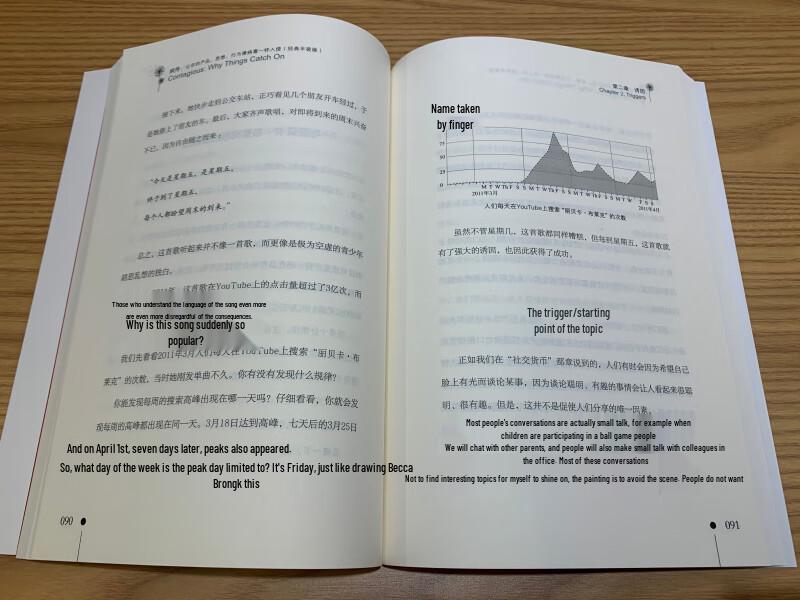 疯传：让你的产品、思想、行为像病毒一样入侵（经典平装版）
Contagious: Why Things Catch On
接下来，她快步走到公交车站，正巧看见几个朋友开车经过，于
是她搭上了朋友的车。最后，大家齐声歌唱，对即将到来的周末兴奋
不已，因为自由随之而来：
“今天是星期五，是星期五。
终于到了星期五。
每个人都盼望周末的到来。”
总之，这首歌听起来并不像一首歌，而更像是极为空虚的青少年
胡思乱想的独白。
2011年，这首歌在YouTube上的点击量超过了3亿次，而
Those who understand the language of the song even more
are even more disregardful of the consequences.
Why is this song suddenly so
popular?
我们先看看2011年3月人们每天在YouTube上搜索“丽贝卡·布
莱克”的次数，当时她刚发单曲不久。你有没有发现什么规律？
你能发现每周的搜索高峰出现在哪一天吗？仔细看看，你就会发
现每周的高峰都出现在同一天。3月18日达到高峰，七天后的3月25日
And on April 1st, seven days later, peaks also appeared.
So, what day of the week is the peak day limited to? It's Friday, just like drawing Becca
Brongk this
090
第二章 诱因
Chapter 2. Triggers
Name taken
by finger
75
50
25
0
M T W Th F S S M T W Th F S S M T W Th F S S M T W
F S S
2011年3月
2011年4月
人们每天在YouTube上搜索“丽贝卡·布莱克”的次数
虽然不管星期几，这首歌都同样糟糕，但每到星期五，这首歌就
有了强大的诱因，也因此获得了成功。
The trigger/starting
point of the topic
正如我们在“社交货币”那章说到的，人们有时会因为希望自己
脸上有光而谈论某事，因为谈论聪明、有趣的事情会让人看起来很聪
明、很有趣。但是，这并不是促使人们分享的唯一因素。
Most people's conversations are actually small talk, for example when
children are participating in a ball game people
We will chat with other parents, and people will also make small talk with colleagues in
the office. Most of these conversations
Not to find interesting topics for myself to shine on, the painting is to avoid the scene. People do not want
091